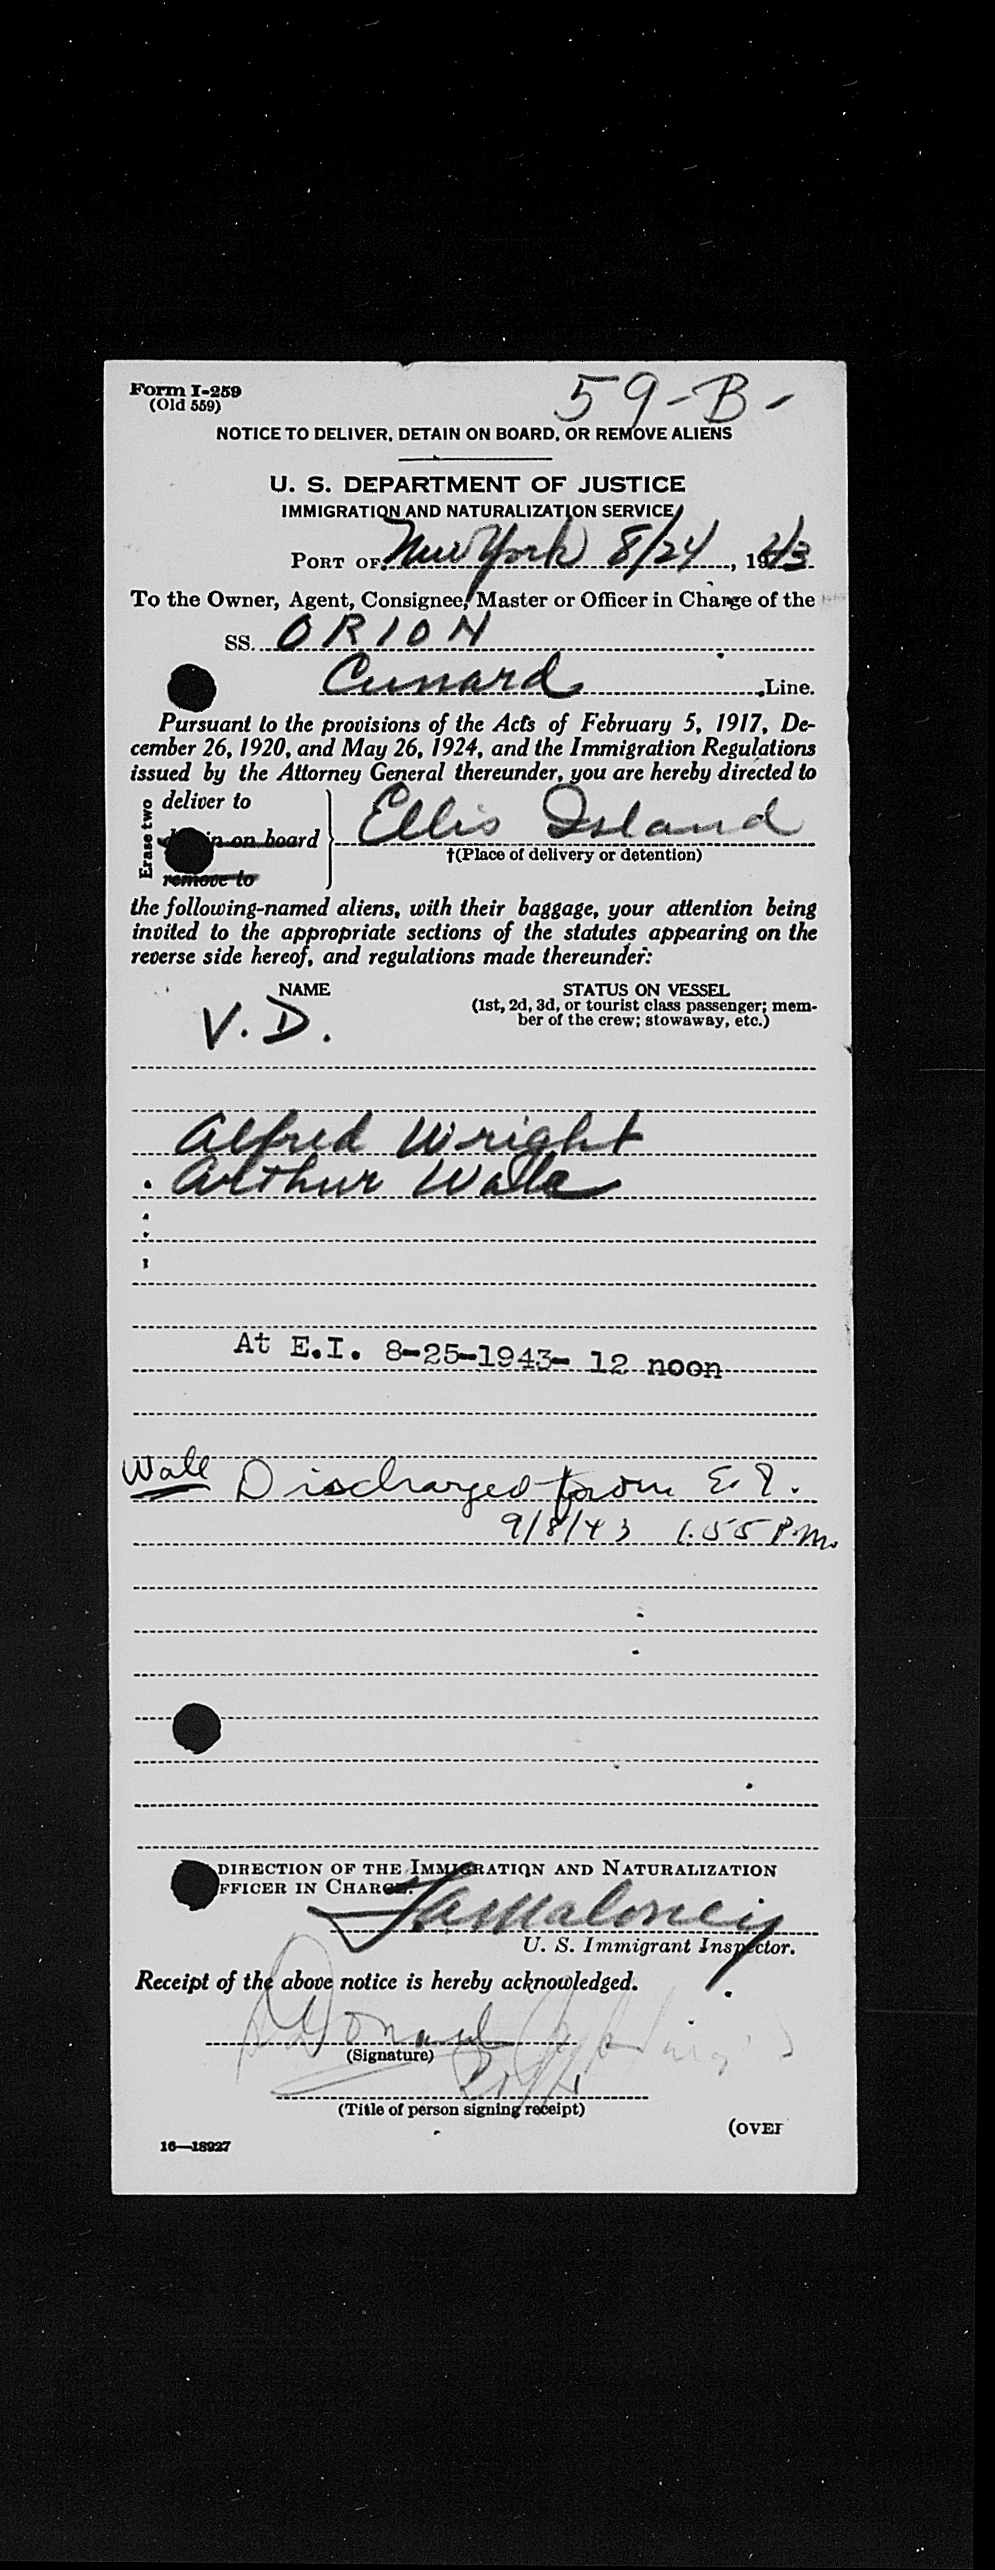 Form I-259
(Old 559)
59-B-
NOTICE TO DELIVER, DETAIN ON BOARD, OR REMOVE ALIENS
U. S. DEPARTMENT OF JUSTICE
IMMIGRATION AND NATURALIZATION SERVICE
PORT OF New York 8/24, 1943
To the Owner, Agent, Consignee, Master or Officer in Charge of the
SS. ORION
Cunard Line.
Pursuant to the provisions of the Acts of February 5, 1917, De-
cember 26, 1920, and May 26, 1924, and the Immigration Regulations
issued by the Attorney General thereunder, you are hereby directed to
Erase two
deliver to
on board
remove to
Ellis Island
†(Place of delivery or detention)
the following-named aliens, with their baggage, your attention being
invited to the appropriate sections of the statutes appearing on the
reverse side hereof, and regulations made thereunder:
NAME
STATUS ON VESSEL
(1st, 2d, 3d, or tourist class passenger; mem-
ber of the crew; stowaway, etc.)
V.D.
Alfred Wright
Arthur
At E.I. 8-25-1943- 12 noon
Wall Discharged from E.I.
9/8/43 1.55 P.M.
DIRECTION OF THE IMMIGRATION AND NATURALIZATION
FFICER IN CHARGE.
Maloney
U. S. Immigrant Inspector.
Receipt of the above notice is hereby acknowledged.
Donald
(Signature)
(Title of person signing receipt)
(OVER
16—18927